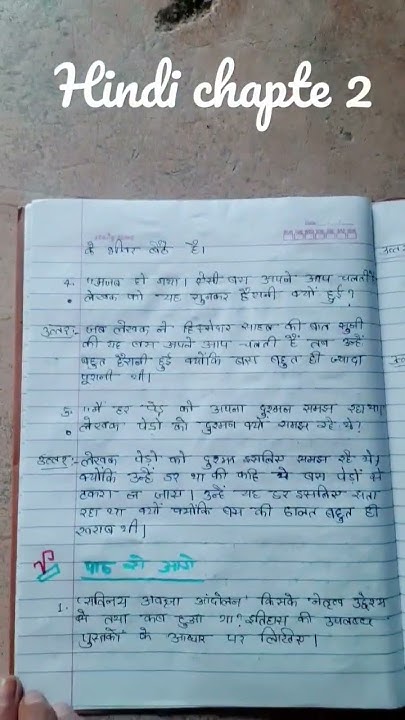 Hindi chapte 2
के भीतर बैठे है।
4. "गजब हो गया। ऐसी बस अपने आप चलती है"
लेखक को यह सुनकर हैरानी क्यों हुई?
उत्तर:- जब लेखक ने हिस्सेदार साहब की बात सुनी
की यह बस अपने आप चलती है तब उन्हें
बहुत हैरानी हुई क्योंकि बस बहुत ही ज्यादा
पूरानी थी।
5. "मैं हर पेड़ को अपना दुश्मन समझ रहा था।
लेखक पेड़ो को दुश्मन क्यों समझ रहे थे?
उत्तर:- लेखक पेड़ो को दुश्मन इसलिए समझ रहे थे,
क्योंकि उन्हें डर था की कहि ये बस पेड़ों से
टकरा ना जाय। उन्हें यह डर इसलिए सता
रहा था क्यों क्योंकि बस की हालत बहुत ही
खराब थी।
पाठ से आगे
1. 'सविनय अवज्ञा आंदोलन' किसके नेतृत्व उद्देश्य
से तथा कब हुआ था? इतिहास की उपलब्ध
पुस्तकों के आधार पर लिखिए।